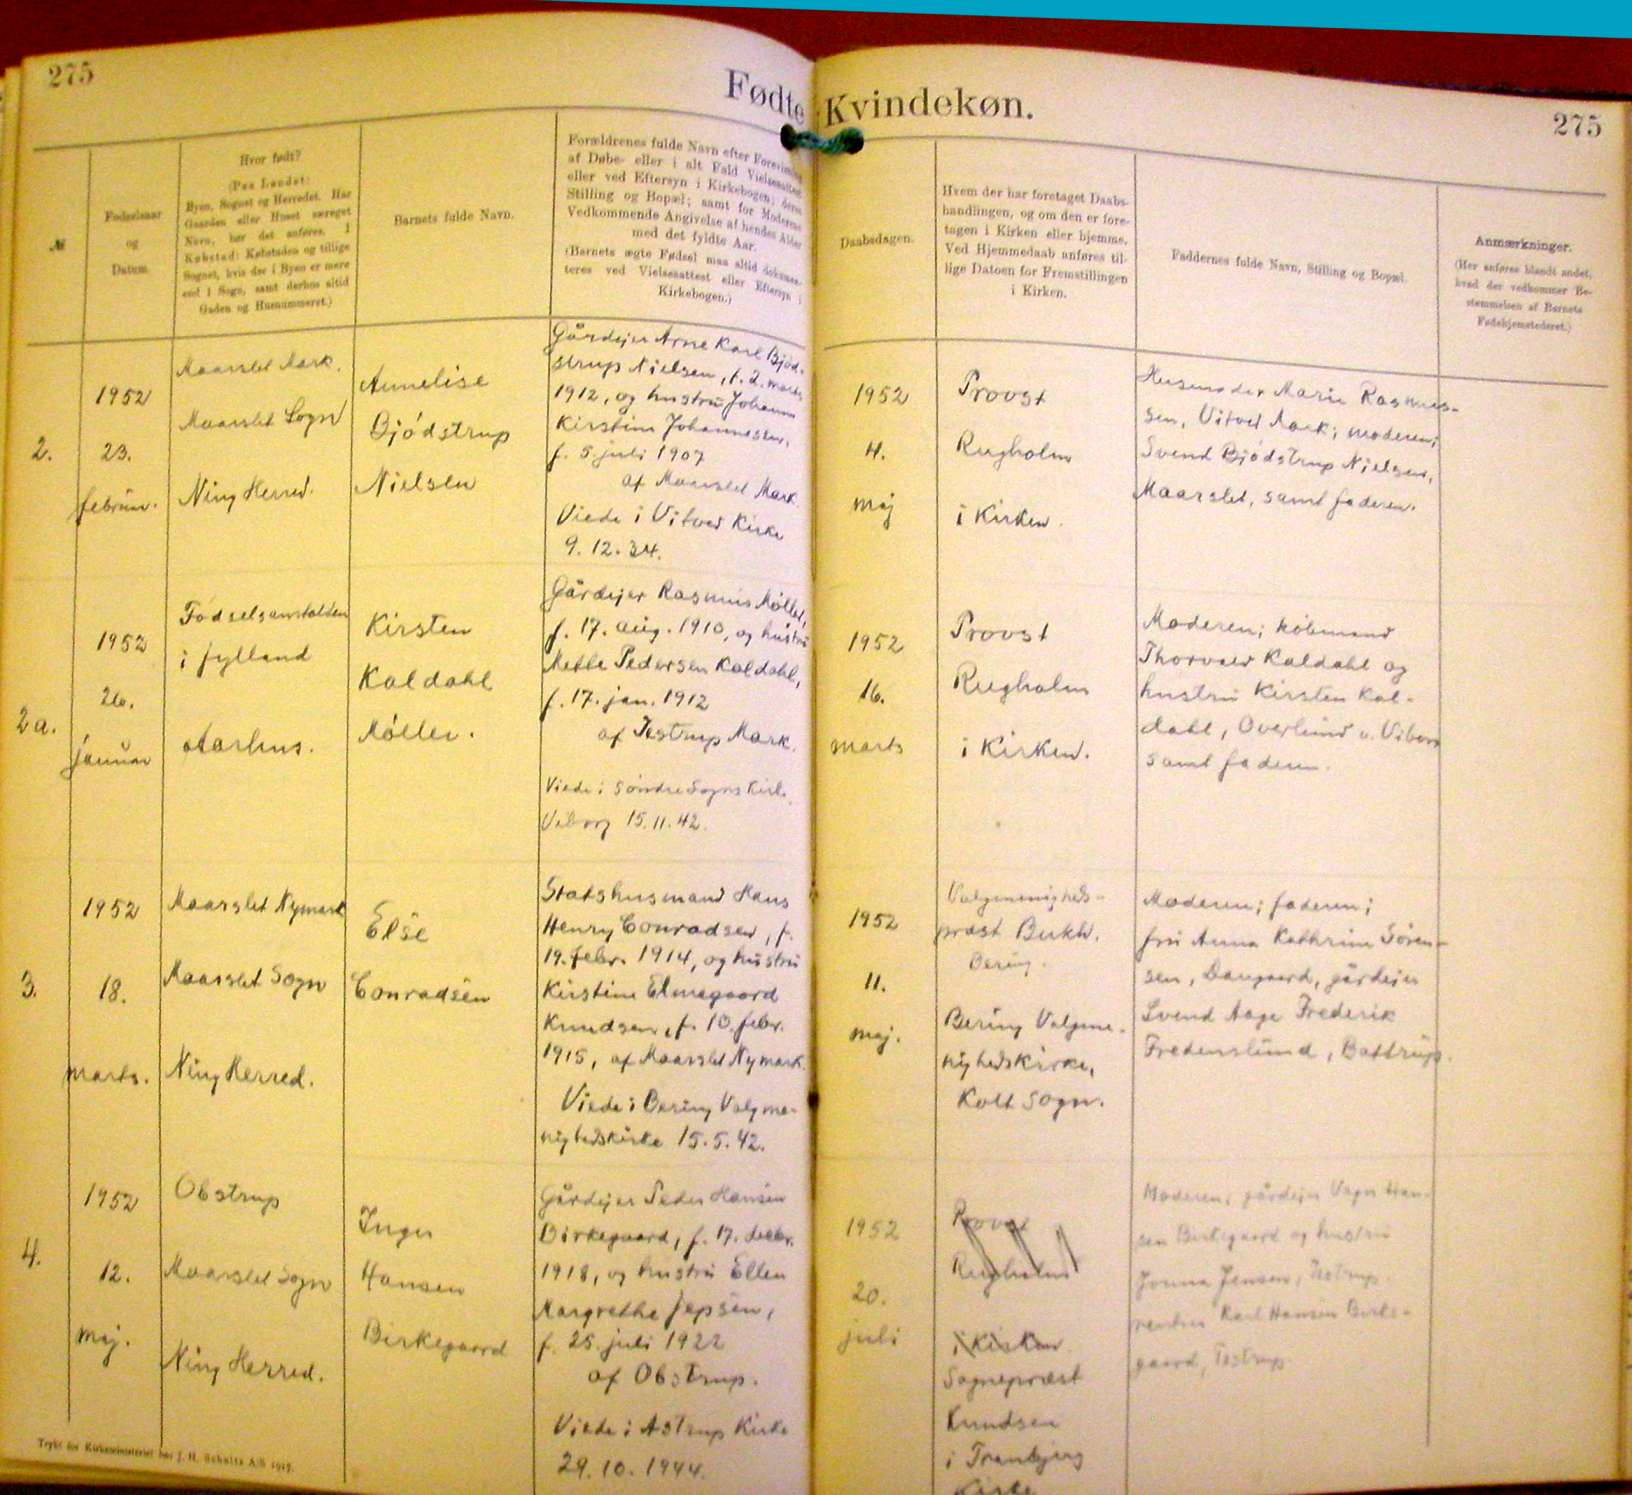 275
Fødte Kvindekøn.
275
№
Fødselsaar
og
Datum.
Hvor født?
(Paa Landet:
Byen, Sognet og Herredet. Har
Gaarden eller Huset særeget
Navn, bør det anføres. I
Købstad: Købstaden og tillige
Sognet, hvis der i Byen er mere
end 1 Sogn, samt derhos altid
Gaden og Husnummeret.)
Barnets fulde Navn.
Forældrenes fulde Navn efter Forevisning
af Døbe- eller i alt Fald Vielsesattest
eller ved Eftersyn i Kirkebogen; deres
Stilling og Bopæl; samt for Moderens
Vedkommende Angivelse af hendes Alder
med det fyldte Aar.
(Barnets ægte Fødsel maa altid dokumen-
teres ved Vielsesattest eller Eftersyn i
Kirkebogen.)
Daabsdagen.
Hvem der har foretaget Daabs-
handlingen, og om den er fore-
tagen i Kirken eller hjemme.
Ved Hjemmedaab anføres til-
lige Datoen for Fremstillingen
i Kirken.
Faddernes fulde Navn, Stilling og Bopæl.
Anmærkninger.
(Her anføres blandt andet,
hvad der vedkommer Be-
stemmelsen af Barnets
Fødehjemstederet.)
2.
1952
23.
februar.
Maarslet Mark.
Maarslet Sogn
Ning Herred.
Annelise
Bjödstrup
Nielsen
Gårdejer Arne Karl Bjöd-
strup Nielsen, f. 2. marts
1912, og hustru Johanne
Kirstine Johannesen,
f. 5. juli 1907
af Maarslet Mark.
Viede i Vitved Kirke
9. 12. 34.
1952
4.
maj
Provst
Rugholm
i Kirken.
Husmoder Marie Rasmus-
sen, Vitved Mark; moderen;
Svend Bjödstrup Nielsen,
Maarslet, samt faderen.
2a.
1952
26.
januar
Födselsanstalten
i Jylland
Aarhus.
Kirsten
Kaldahl
Möller.
Gårdejer Rasmus Möller,
f. 17. aug. 1910, og hustru
Mette Pedersen Kaldahl,
f. 17. jan. 1912
af Testrup Mark.
Viede i Söndre Sogns Kirke
Viborg 15. 11. 42.
1952
16.
marts
Provst
Rugholm
i Kirken.
Moderen; købmand
Thorvald Kaldahl og
hustru Kirsten Kal-
dahl, Overlund v. Viborg
samt faderen.
3.
1952
18.
marts.
Maarslet Nymark
Maarslet Sogn
Ning Herred.
Else
Conradsen
Statshusmand Hans
Henry Conradsen, f.
19. febr. 1914, og hustru
Kirstine Elmegaard
Knudsen, f. 10. febr.
1915, af Maarslet Nymark
Viede i Bering Valgme-
nighedskirke 15. 5. 42.
1952
11.
maj.
Valgmenigheds-
præst Bukh.
Bering.
Bering Valgme-
nighedskirke,
Kolt Sogn.
Moderen; faderen;
fru Anna Kathrine Sören-
sen, Damgaard, gårdejer
Svend Aage Frederik
Fredenslund, Battrup.
4.
1952
12.
maj.
Obstrup
Maarslet Sogn
Ning Herred.
Inger
Hansen
Birkegaard
Gårdejer Peder Hansen
Birkegaard, f. 17. decbr.
1918, og hustru Ellen
Margrethe Jepsen,
f. 25. juli 1922
af Obstrup.
Viede i Astrup Kirke
29. 10. 1944.
1952
20.
juli
Provst
Rugholm
i Kirken
Sognepræst
Knudsen
i Tranbjerg
Kirke
Moderen; gårdejer Vagn Han-
sen Birkegaard og hustru
Jonna Jensen, Testrup.
rentier Karl Hansen Birke-
gaard, Testrup.
Trykt for Kirkeministeriet hos J. H. Schultz A/S 1917.